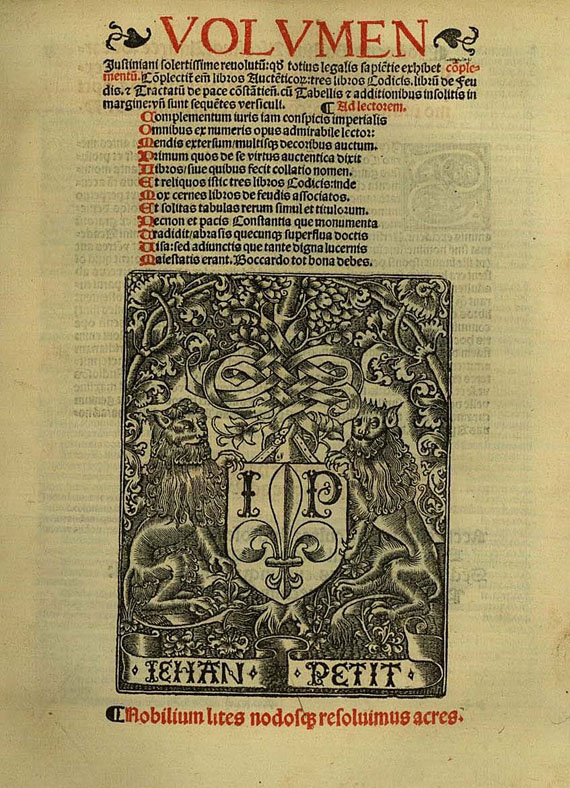 VOLVMEN
Justiniani solertissime reuolutũ: qđ totius legalis sapiẽtie exhibet cõple-
mentũ. Cõplectit̃ em̃ libros Auctẽticoꝝ: tres libros Codicis. librũ de Feu
dis. ⁊ Tractatũ de pace cõstãtieñ. cũ Tabellis ⁊ additionibus insolitis in
margine: vñ sunt sequẽtes versiculi. ¶ Ad lectorem.
Complementum iuris iam conspicis imperialis
Omnibus ex numeris opus admirabile lector:
Mendis extersum/multisqꝫ decoribus auctum.
Primum quos de se virtus auctentica dixit
Libros/siue quibus fecit collatio nomen.
Et reliquos istic tres libros Codicis: inde
Mox cernes libros de feudis associatos.
Et solitas tabulas rerum simul et titulorum.
Necnon et pacis Constantia que monumenta
Tradidit/abrasis quecunqꝫ superflua doctis
Uisa: sed adiunctis que tante digna lucernis
Maiestatis erant. Boccardo tot bona debes.
I P
IEHAN PETIT
¶ Nobilium lites nodosqꝫ resoluimus acres.